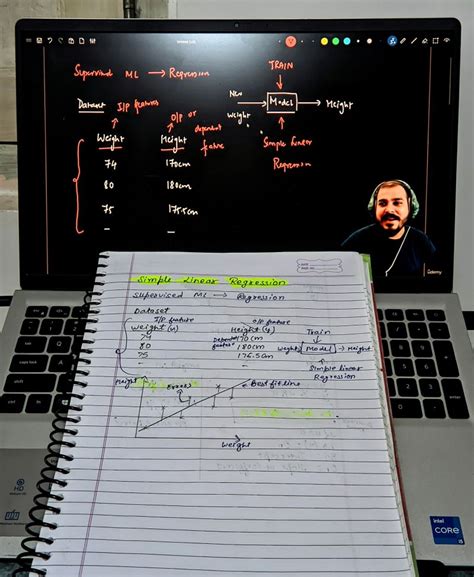 Supervised ML → Regression
TRAIN
Dataset I/P features
O/P or dependent feature
New Weight → Model → Height
Simple Linear Regression
Weight Height
74 170cm
80 180cm
75 175.5cm
Udemy
Simple Linear Regression
Supervised ML → Regression
Dataset
I/P feature O/P feature
Weight (x) Height (y)
74 170cm
80 180cm
75 176.5cm
Dependent feature
Train
Weight → Model → Height
Simple Linear Regression
Height
Error
Best fit line
Weight
HD
intel
CORE
i5